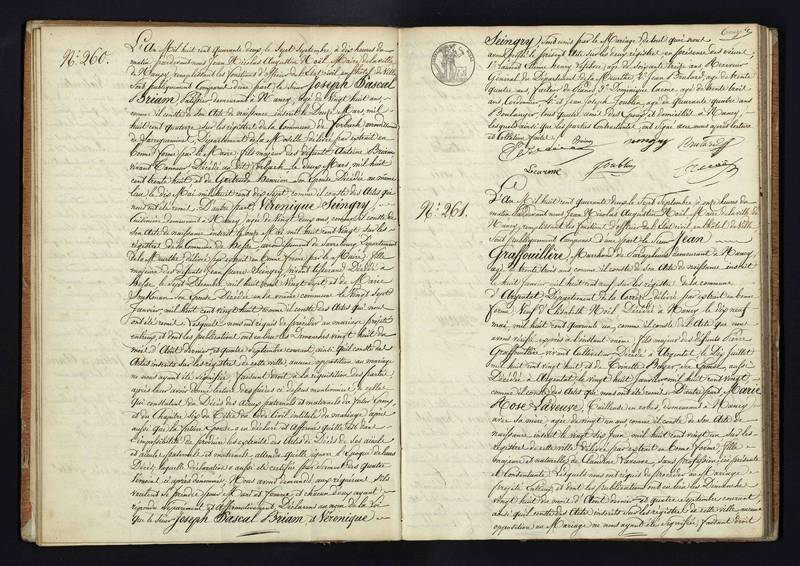 N.° 260.
L'An Mil huit cent Quarante deux, le Sept Septembre, à dix heures du
matin, pardevant nous Jean Nicolas Augustin Noël, Maire de la ville
de Nancy, remplissant les fonctions d'officier de l'Etat civil, en l'hôtel de Ville
Sont publiquement Comparus d'une part le Sieur Joseph Pascal
Briam, demeurant à Nancy, âgé de Vingt huit ans
comme il conste de son Acte de naissance inscrit le Douze Mars mil
huit cent quatorze sur les registres de la Commune de Forbach arrondissement
de Sarreguemines, Département de la Moselle délivré par extrait en
bonne forme par le Maire, fils majeur des défunts Antoine Briam
vivant Tanneur Décédé au dit Forbach, le deux Mars, mil huit
cent trente huit et de Gertrude son Epouse Décédée au même
lieu le dix Mai mil huit cent dix Sept, comme il conste des Actes qui
nous ont été remis. D'autre part Véronique Seingry,
Cuisinière demeurant à Nancy, âgée de Vingt deux ans comme il conste de
son Acte de naissance inscrit le Mai mil huit cent vingt sur les
registres de la Commune de arrondissement de Sarrebourg, Département
de la Meurthe délivré par extrait en bonne forme par le Maire, fille
majeure des défunts Jean Pierre Seingry, vivant Tisserand Décédé à
le Sept Décembre mil huit cent Vingt Sept et de Marie
son Epouse Décédée en la même commune le Vingt Sept
Janvier, mil huit cent trente huit comme il conste des Actes qui nous
ont été remis. Lesquels nous ont requis de procéder au mariage projeté
entre eux et dont les publications ont eu lieu les Dimanches vingt huit du
mois d'Août dernier et quatre Septembre courant, ainsi qu'il conste des
Actes inscrits sur les registres de cette ville aucune opposition au mariage
ne nous ayant été signifiée, faisant droit à la réquisition des parties
après leur avoir donné lecture des pièces ci dessus mentionnées, de celles
qui constatent du Décès des aïeux paternels et maternels du futur Epoux,
et du Chapitre Six du Titre du Code Civil intitulé du mariage, après
aussi que la future Epouse a eu déclaré et affirmé qu'elle est dans
l'impossibilité de produire les extraits des Actes de Décès de ses aïeuls
et aïeules paternels et maternels attendu qu'elle ignore l'époque de leurs
Décès, laquelle déclaration a aussi été certifiée par serment des quatre
témoins ci après dénommés, Nous avons demandé aux requérans s'ils
veulent se prendre pour Mari et Femme et chacun d'eux ayant
répondu Séparément et affirmativement, Déclarons au nom de la Loi
que le Sieur Joseph Pascal Briam, et Véronique
Seingry, sont unis par le Mariage, de tout quoi nous
avons dressé le présent Acte sur les deux registres en présence des Sieurs
1.° âgé de soixante treize ans Receveur
Général du Département de la Meurthe 2.° Jean Boulard, âgé de trente
quatre ans, Tailleur de 3.° Dominique Lacroix âgé de trente trois
ans, Cordonnier 4.° Jean Joseph Joublin, âgé de Quarante quatre ans
Boulanger tous quatre amis des Epoux et domiciliés à Nancy,
lesquels ainsi que les parties Contractantes ont signé avec nous après lecture
et Collation faite.
Briam Seingry Boulard
Joublin
N.° 261.
L'An Mil huit cent Quarante deux le Sept Septembre à onze heures du
matin, pardevant nous Jean Nicolas Augustin Noël, Maire de la ville de
Nancy, remplissant les fonctions d'officier de l'Etat civil, en l'hôtel de Ville
Sont publiquement Comparus d'une part le Sieur Jean
Graffouillère, Marchand de Parapluies demeurant à Nancy,
âgé de trente trois ans comme il conste de son Acte de naissance inscrit
le huit Janvier mil huit cent neuf sur les registres de la commune
d'Argentat Département de la Corrèze délivré par extrait en bonne
forme, Veuf d'Elisabeth Noël Décédée à Nancy le dix neuf
mai, mil huit cent quarante un, comme il conste de l'Acte que nous
avons vérifié à l'instant même, fils majeur des défunts Pierre
Graffouillère, vivant Cultivateur Décédé à Argentat, le Dix Juillet
mil huit cent vingt huit et de Toinette son Epouse, aussi
Décédée à Argentat le vingt huit Janvier mil huit cent vingt
comme il conste des Actes qui nous ont été remis. D'autre part Marie
Rose Laveuve, Tailleuse en robes, demeurant à Nancy
avec sa mère, âgée de vingt un ans comme il conste de son Acte de
naissance inscrit le vingt six Juin mil huit cent vingt un sur les
registres de cette ville délivré par extrait en bonne forme fille
majeure et naturelle de Claudine Laveuve, sans profession ici présente
et Consentante. Lesquels nous ont requis de procéder au Mariage
projeté entre eux et dont les publications ont eu lieu les Dimanches
vingt huit du mois d'Août dernier et quatre Septembre courant,
ainsi qu'il conste des Actes inscrits sur les registres de cette ville aucune
opposition au Mariage ne nous ayant été signifiée, faisant droit